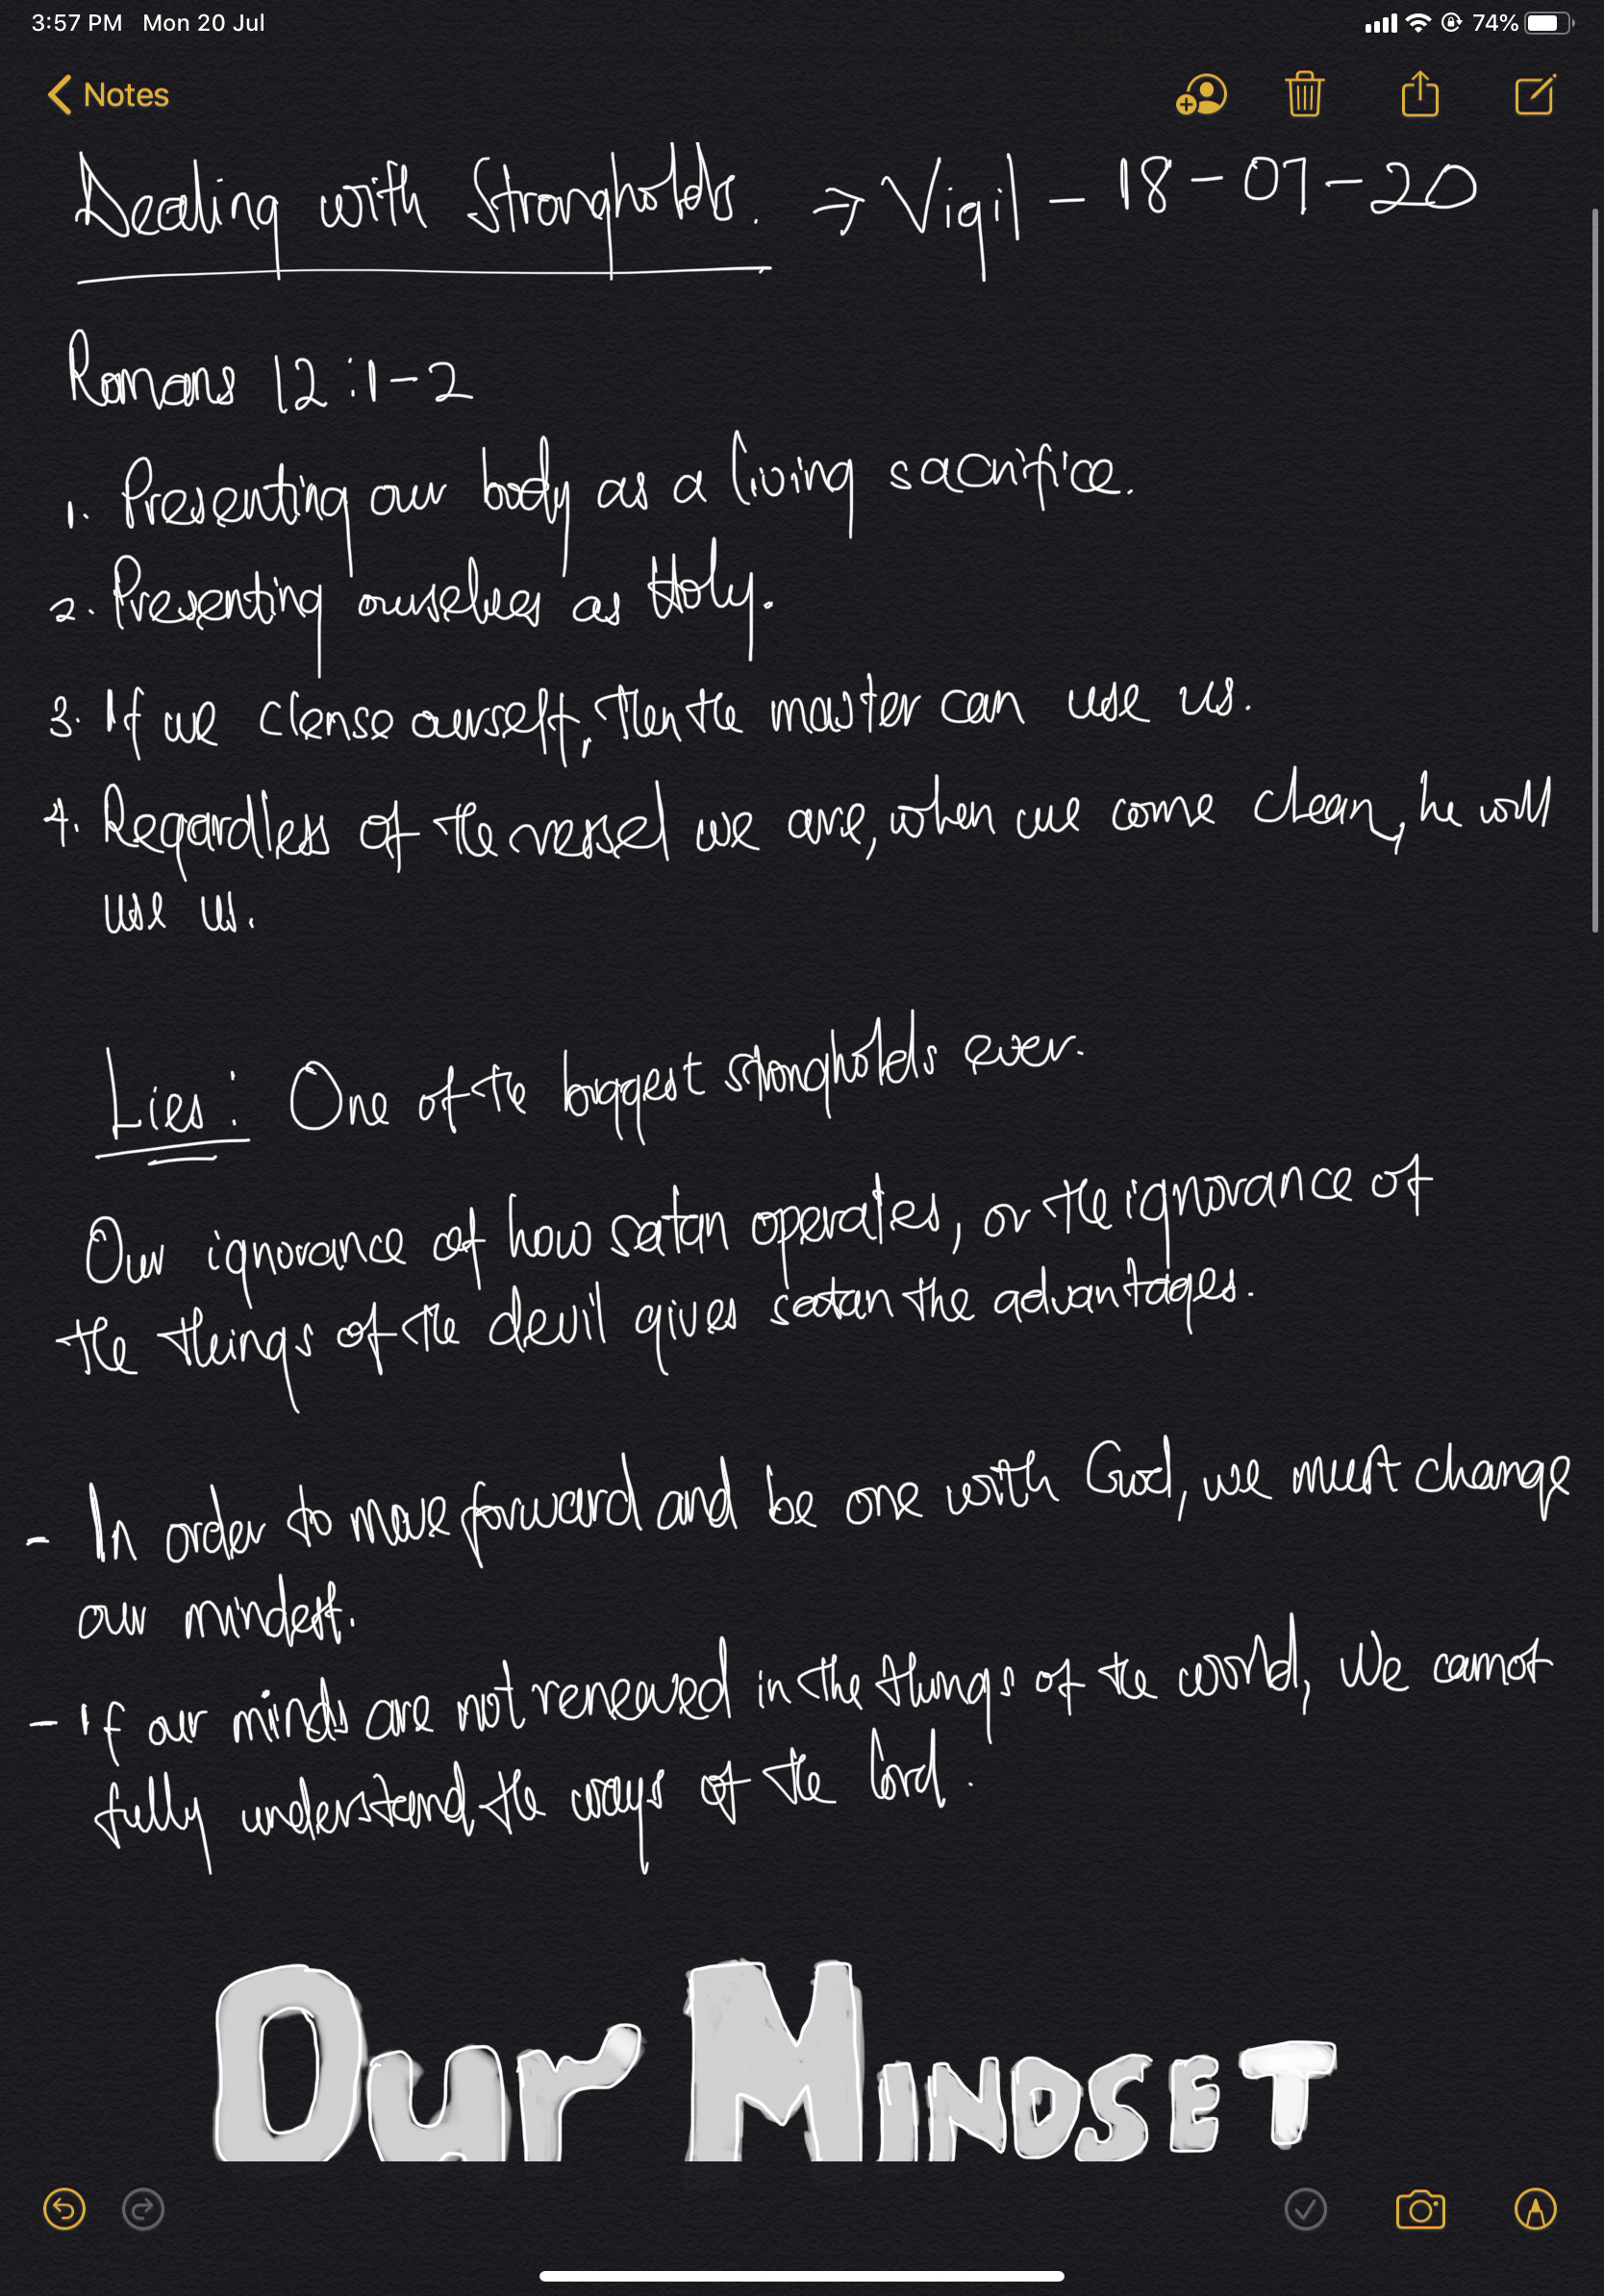 3:57 PM Mon 20 Jul 74%
Notes
Dealing with Strongholds. → Vigil - 18-07-20
Romans 12:1-2
1. Presenting our body as a living sacrifice.
2. Presenting ourselves as Holy.
3. If we clense ourself, then the master can use us.
4. Regardless of the vessel we are, when we come clean, he will
use us.
Lies: One of the biggest strongholds ever.
Our ignorance of how satan operates, or the ignorance of
the things of the devil gives satan the advantages.
- In order to move forward and be one with God, we must change
our mindest.
- If our minds are not renewed in the things of the world, We cannot
fully understand, the ways of the lord.
Our MINDSET